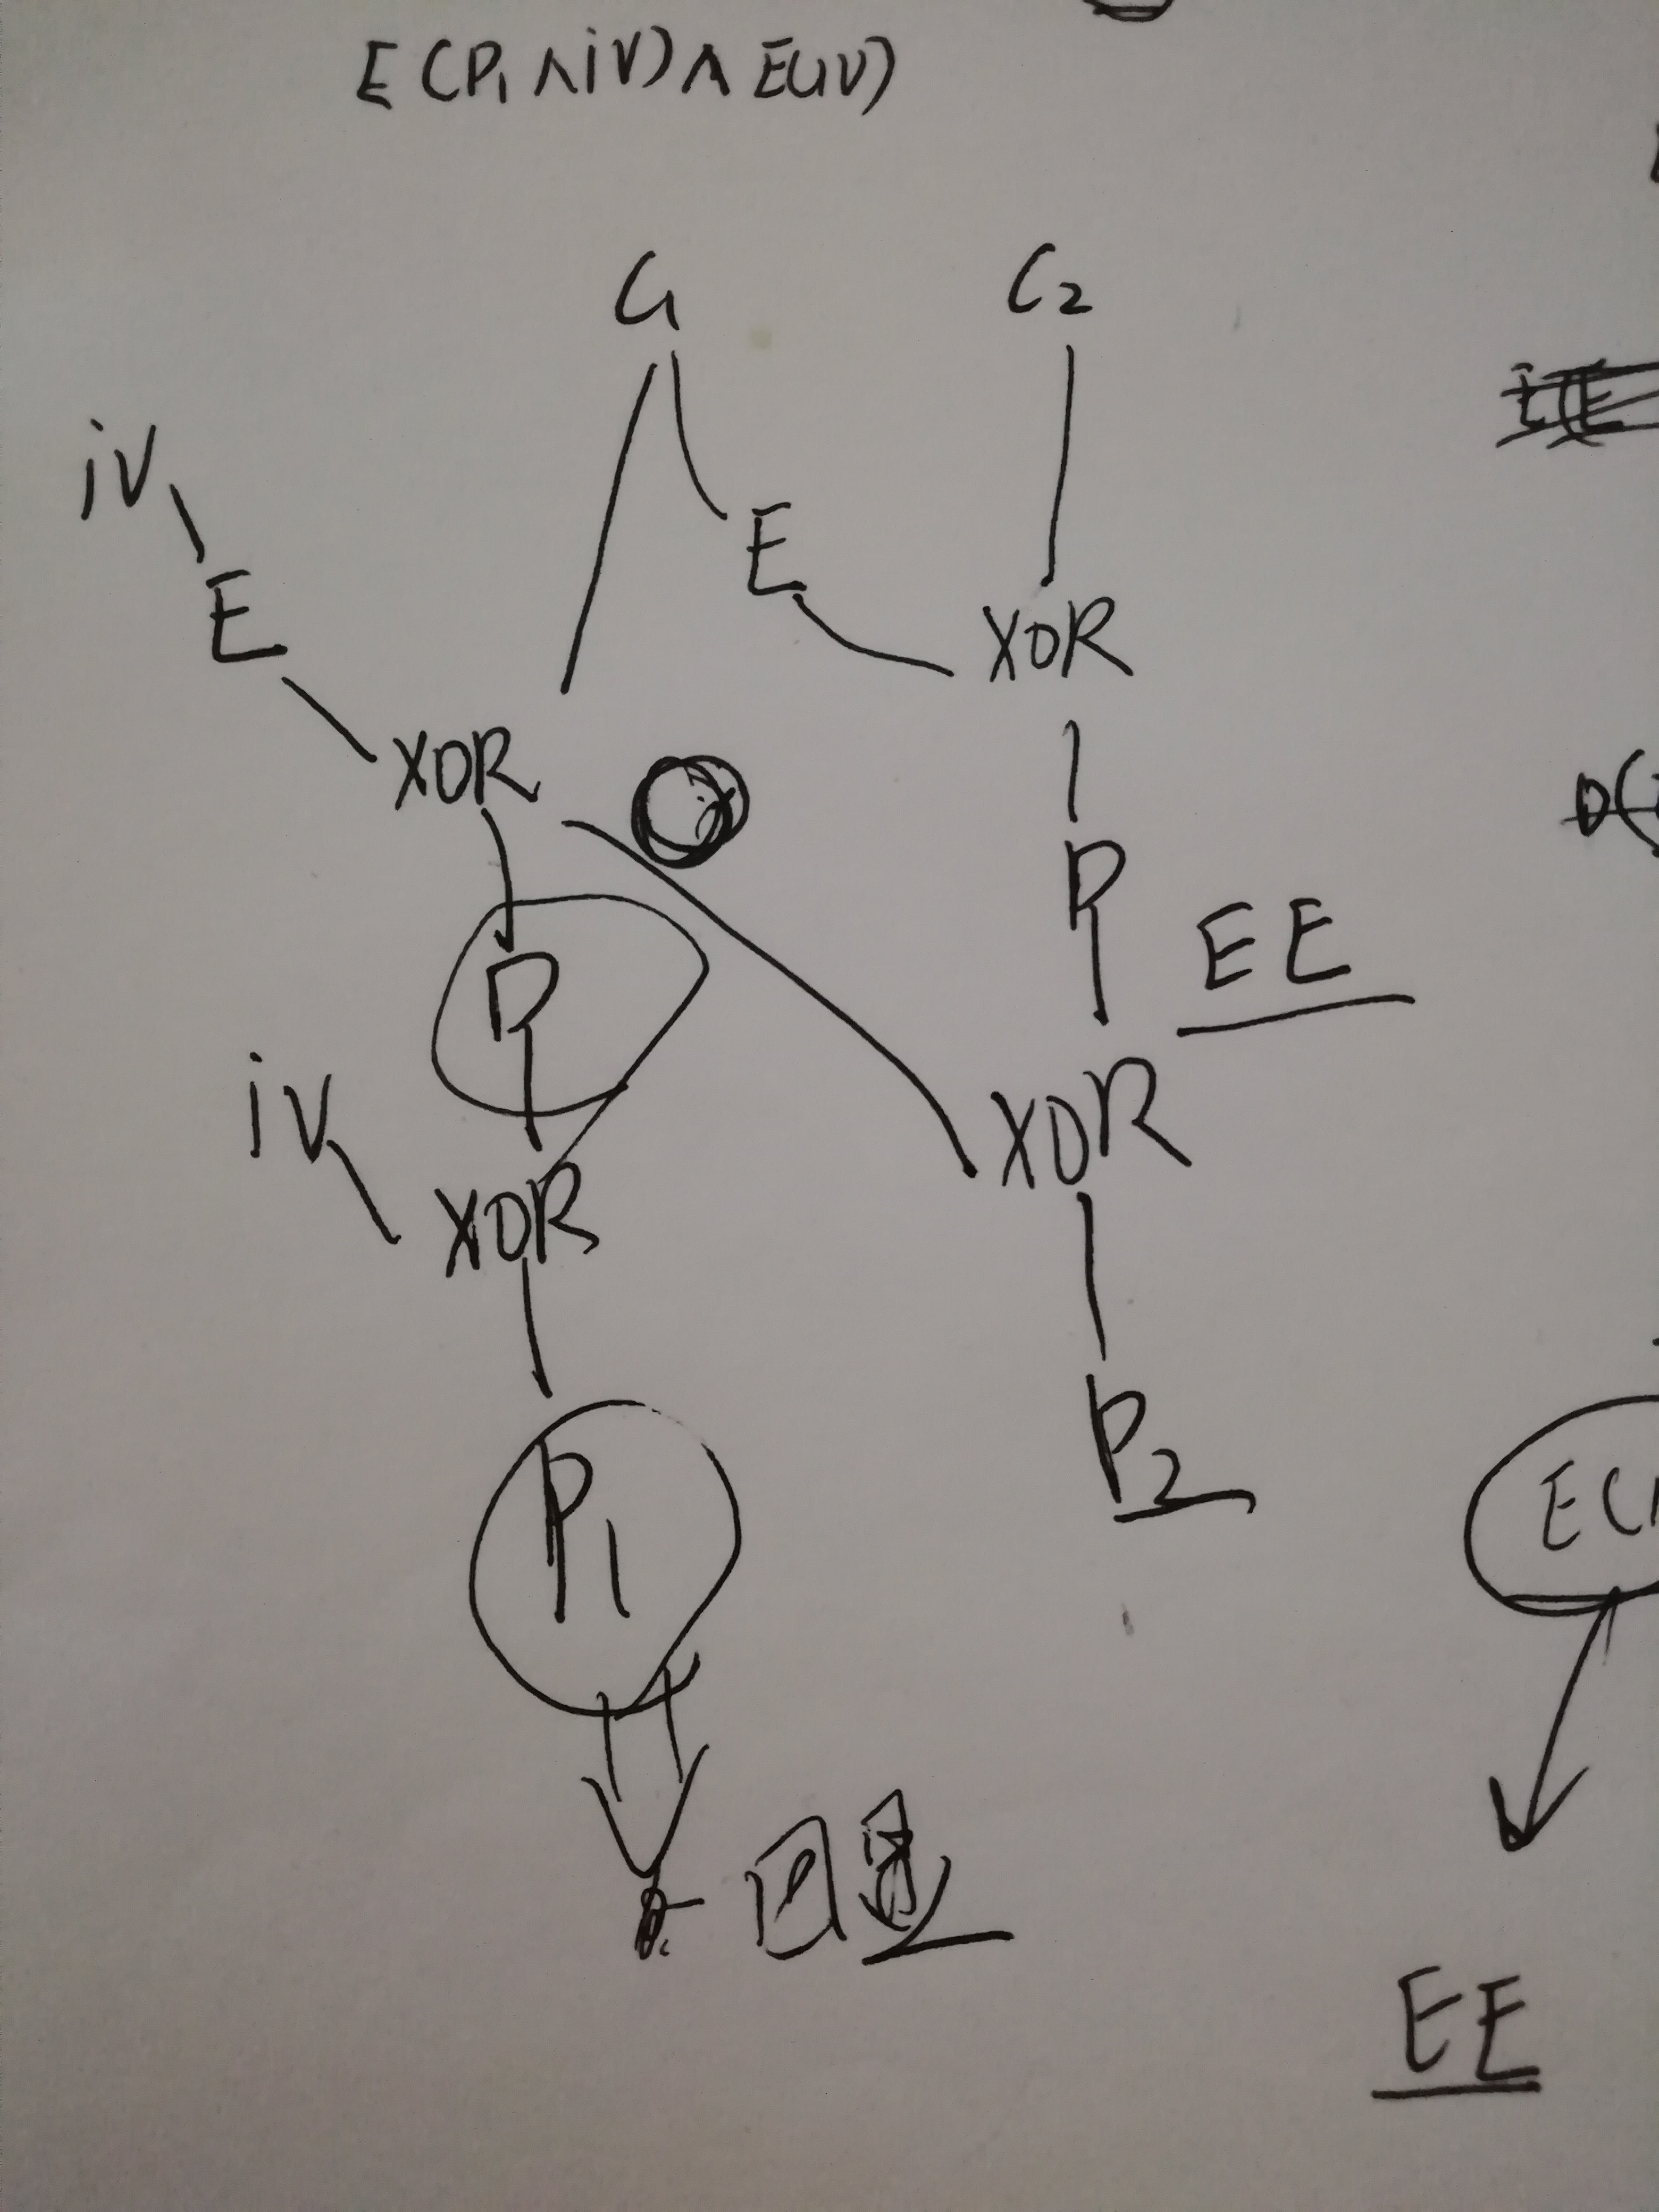 E(P₁∧iV)∧E(iV)
C₁ C₂
iV
E
E
XOR
XOR
D
EE
D
iV
XOR
XOR
P₂
P₁
E(
D(
EE